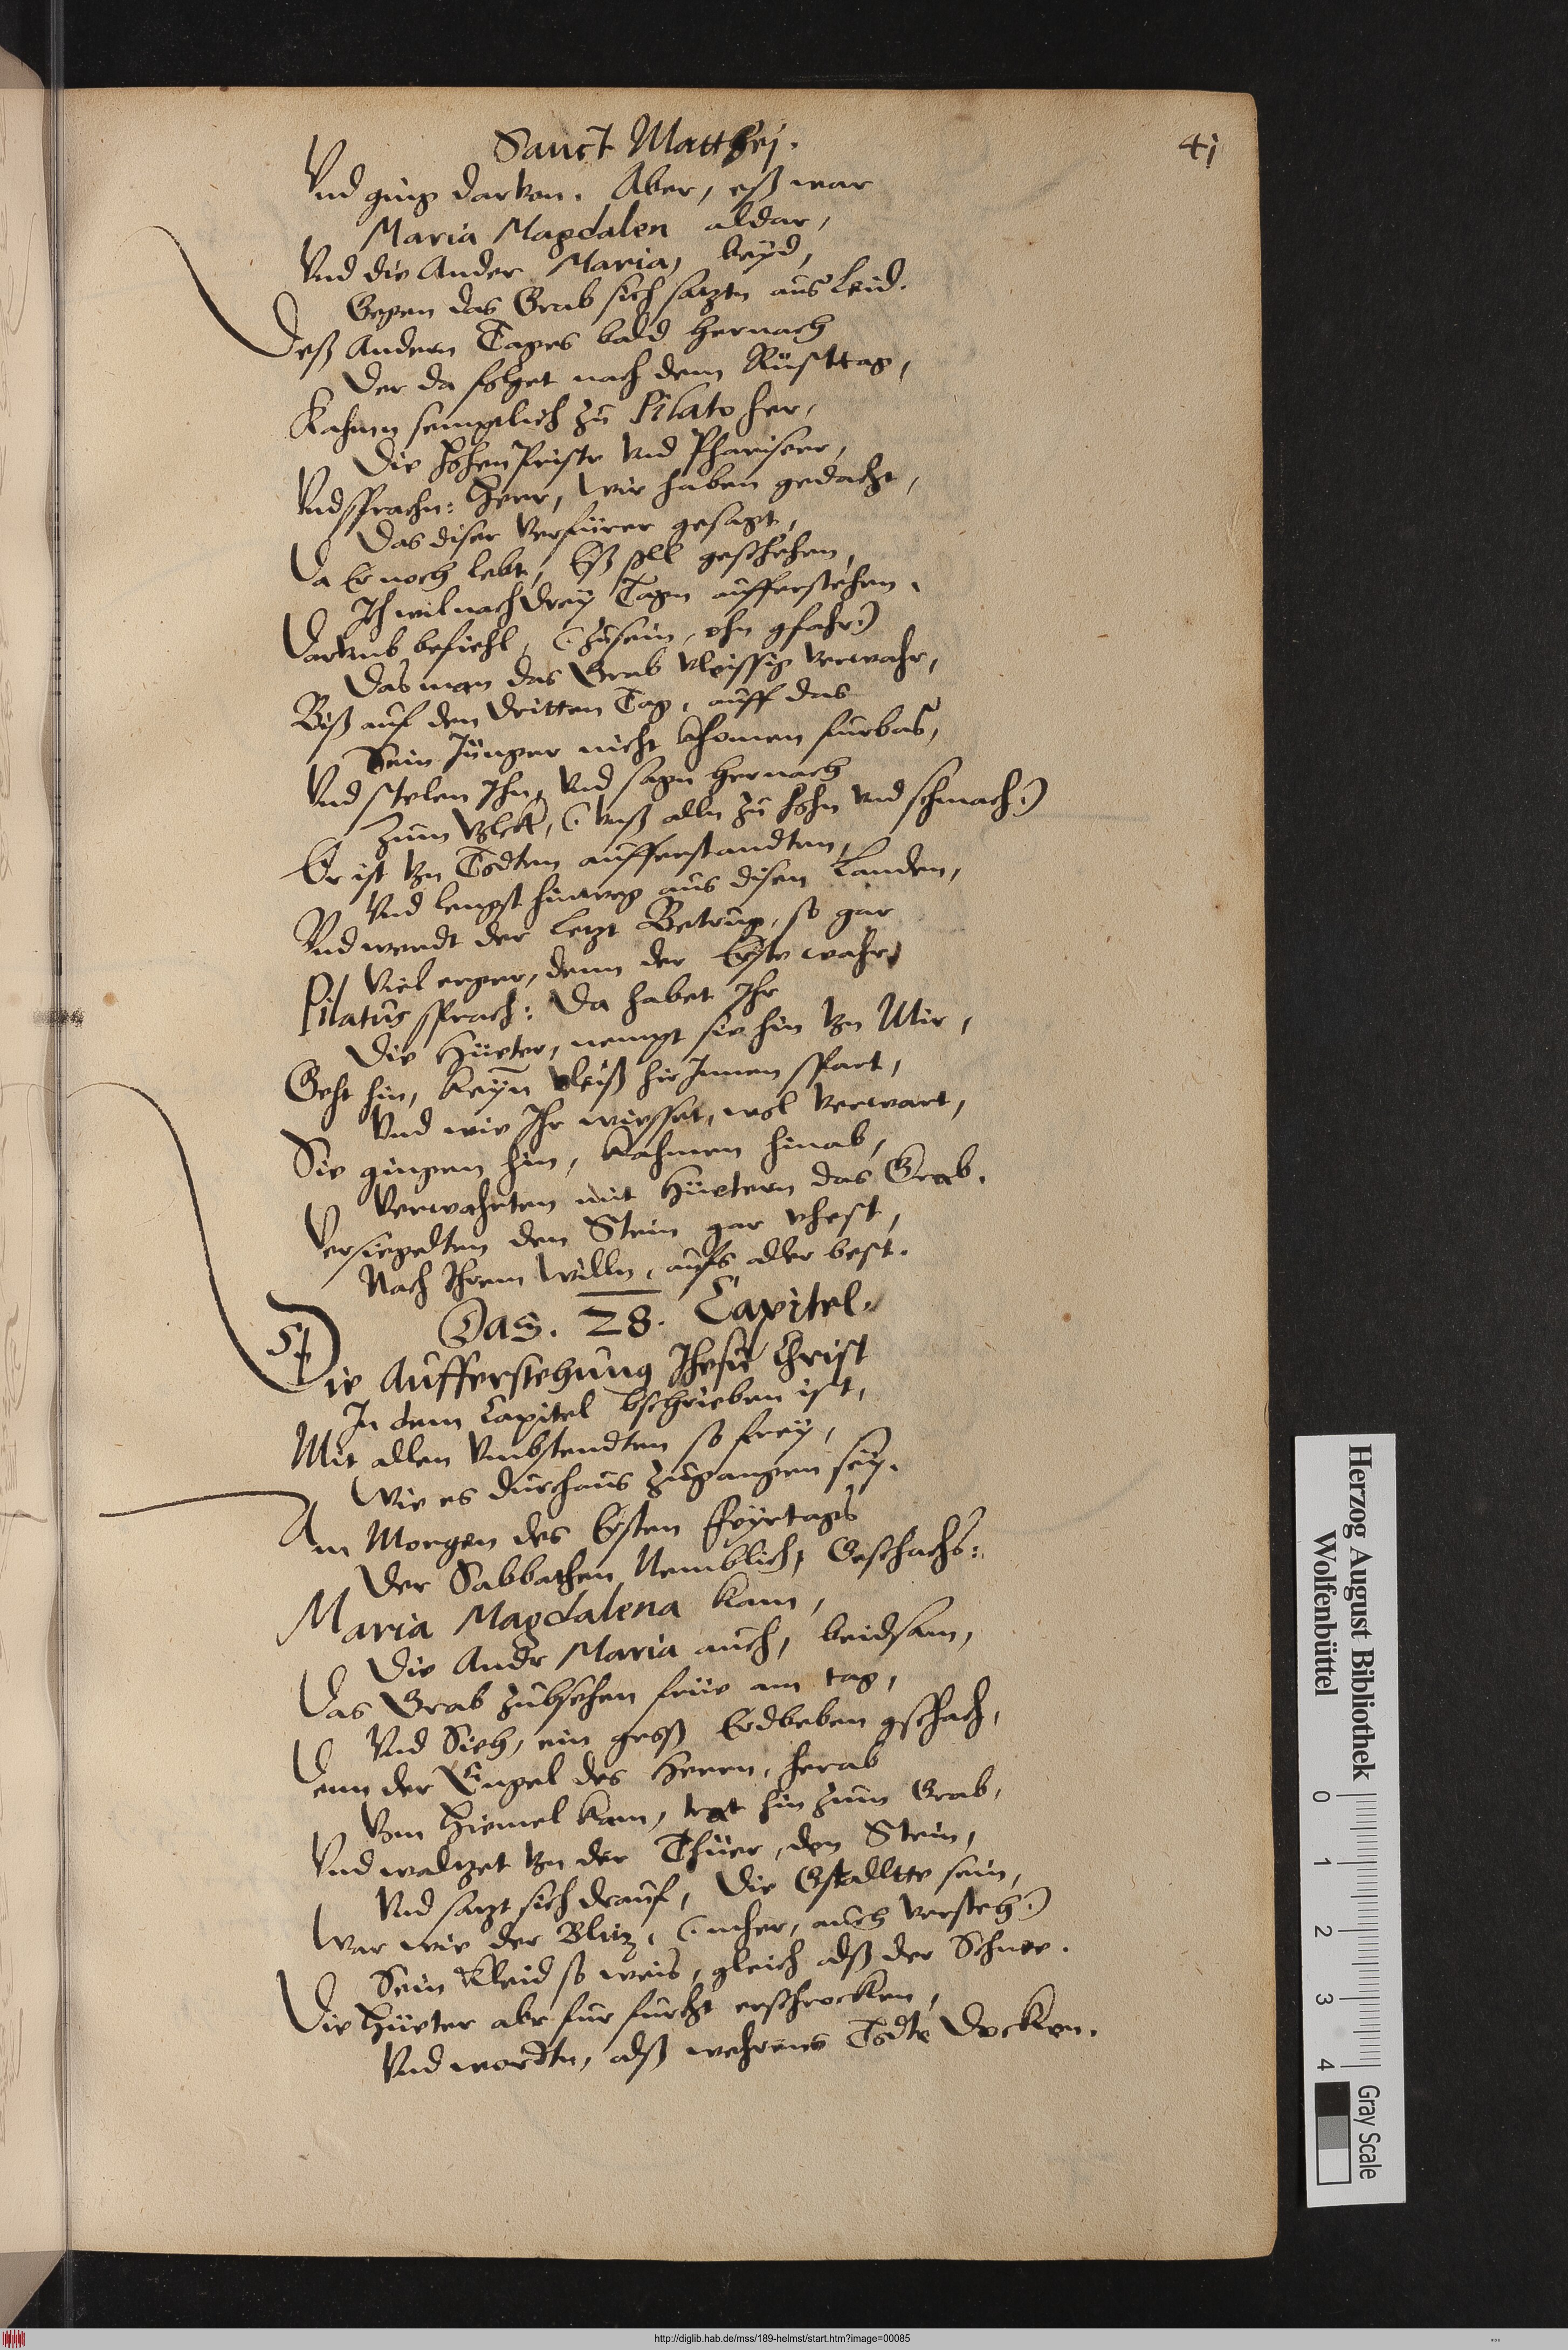 Sanct Matthej.
41
Vnd ging darvon. Aber, eß war
Maria Magdalen aldar,
Vnd die Ander Maria, beyd,
Gegen das Grab sich satztn aus Leid.
Deß Andern Tages bald hernach
Der da folget nach dem Rüsttag,
Kahmen semptlich zu Pilato her,
Die Hohen Pristr vnd Phariseer,
Vnd sprachn: Herr, Wir haben gedacht,
Das diser Verfürer gesagt,
Da Er noch lebt, Eß soll geschehen,
Ich wil nach drey Tagn aufferstehen.
Darumb befiehl, (: zusein, ohn gfahr:)
Das man das Grab vleissig verwahr,
Biß auf den dritten Tag, auff das
Sein Jünger nicht khomen fürbas,
Vnd stelen Ihn, Vnd sagn hernach
Zum Volck, (: vnß alln zu hohn vnd schmach:)
Er ist von Todten aufferstandten,
Vnd lengst hinweg aus disen Landen,
Vnd werdt der letzt Betrug, so gar
Viel erger, denn der Erste wahr,
Pilatus sprach: Da habet Ihr
Die Hüeter, nempt sie hin von Mir,
Geht hin, keyn vleiß hir Innen spart,
Vnd wie Ihr wiesset, wol verwart,
Sie gingen hin, kahmen hinab,
Verwahrten mit Hüetern das Grab.
Versiegelten den Stein gar vhest,
Nach Ihrem Willn, aufs aller best.
Das. 28. Capitel.
Die Aufferstehung Jhesu Christ
In dem Capitel bschrieben ist,
Mit allen Vmbstendten so frey,
Wie es durchaus zugangen sey.
Am Morgen des Ersten Feyrtags
Der Sabbathen Nemblich, Geschachs:
Maria Magdalena kam,
Die Andr Maria auch, beidsam,
Das Grab zubsehen früe am tag,
Vnd Sieh, ein groß Erdbeben gschach,
Denn der Engel des Herrn, herab
Vom Hiemel kam, trat hin zum Grab,
Vnd waltzet von der Thüer, den Stein,
Vnd satzt sich drauf, Die Gstalltte sein,
War wie der Blitz, (: mher, auch versteh:)
Sein Kleid so weis, gleich alß der Schnee.
Die Hüeter abr fur furcht erschrocken,
Vnd wordtn, alß wehrens Todte Docken.
Herzog August Bibliothek
Wolfenbüttel
0 1 2 3 4
Gray Scale
http://diglib.hab.de/mss/189-helmst/start.htm?image=00085